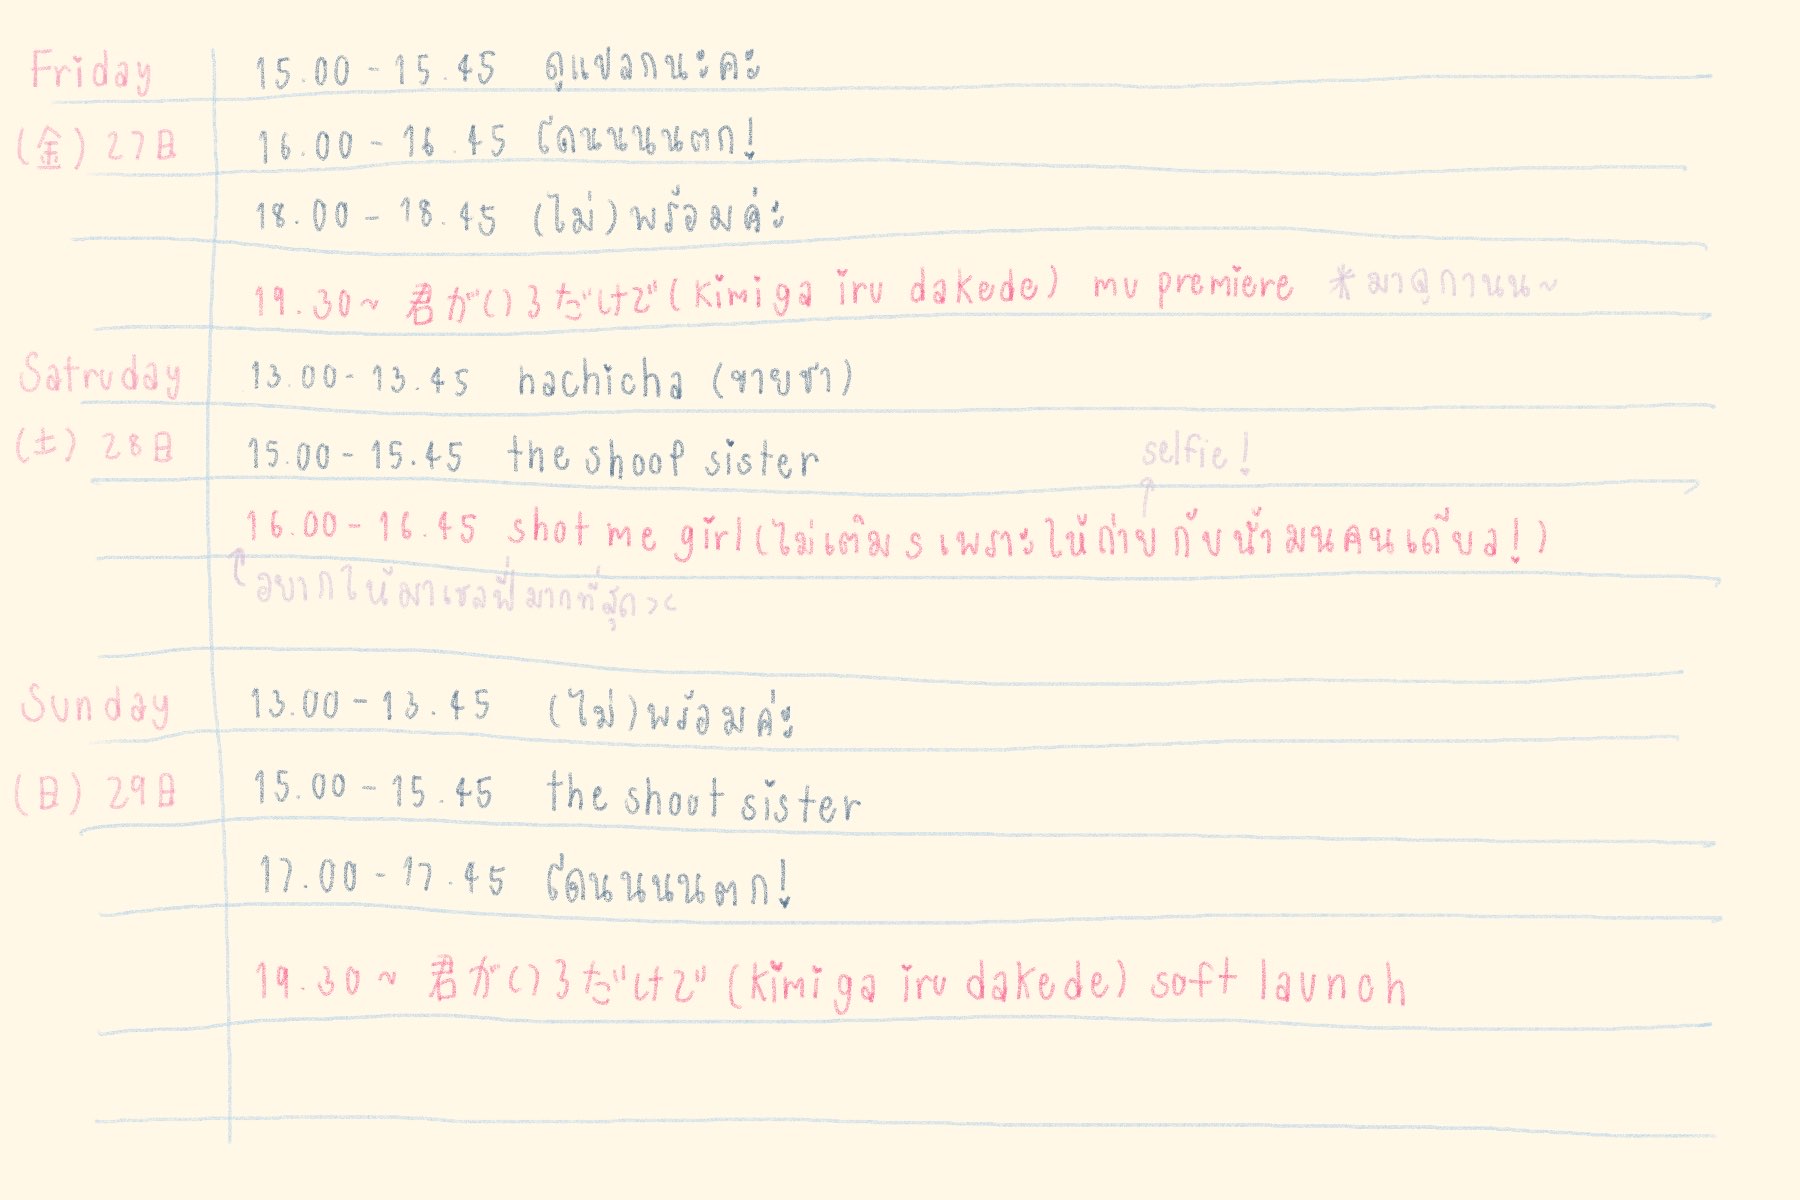 Friday 15.00 - 15.45 ดูแปลกนะคะ
(金) 27日 16.00 - 16.45 โดนนนนตก!
18.00 - 18.45 (ไม่) พร้อมค่ะ
19.30~ 君がいるだけで (kimi ga iru dakede) mv premiere *มาดูกานนน~
Satruday 13.00 - 13.45 hachicha (ขายชา)
(土) 28日 15.00 - 15.45 the shoop sister
selfie!
16.00 - 16.45 shot me girl (ไม่เติม s เพราะให้ถ่ายกับน้ำมนคนเดียว!)
อยากให้มาเซลฟี่มากที่สุด ><
Sunday 13.00 - 13.45 (ไม่) พร้อมค่ะ
(日) 29日 15.00 - 15.45 the shout sister
17.00 - 17.45 โดนนนนตก!
19.30 ~ 君がいるだけで (kimi ga iru dakede) soft launch